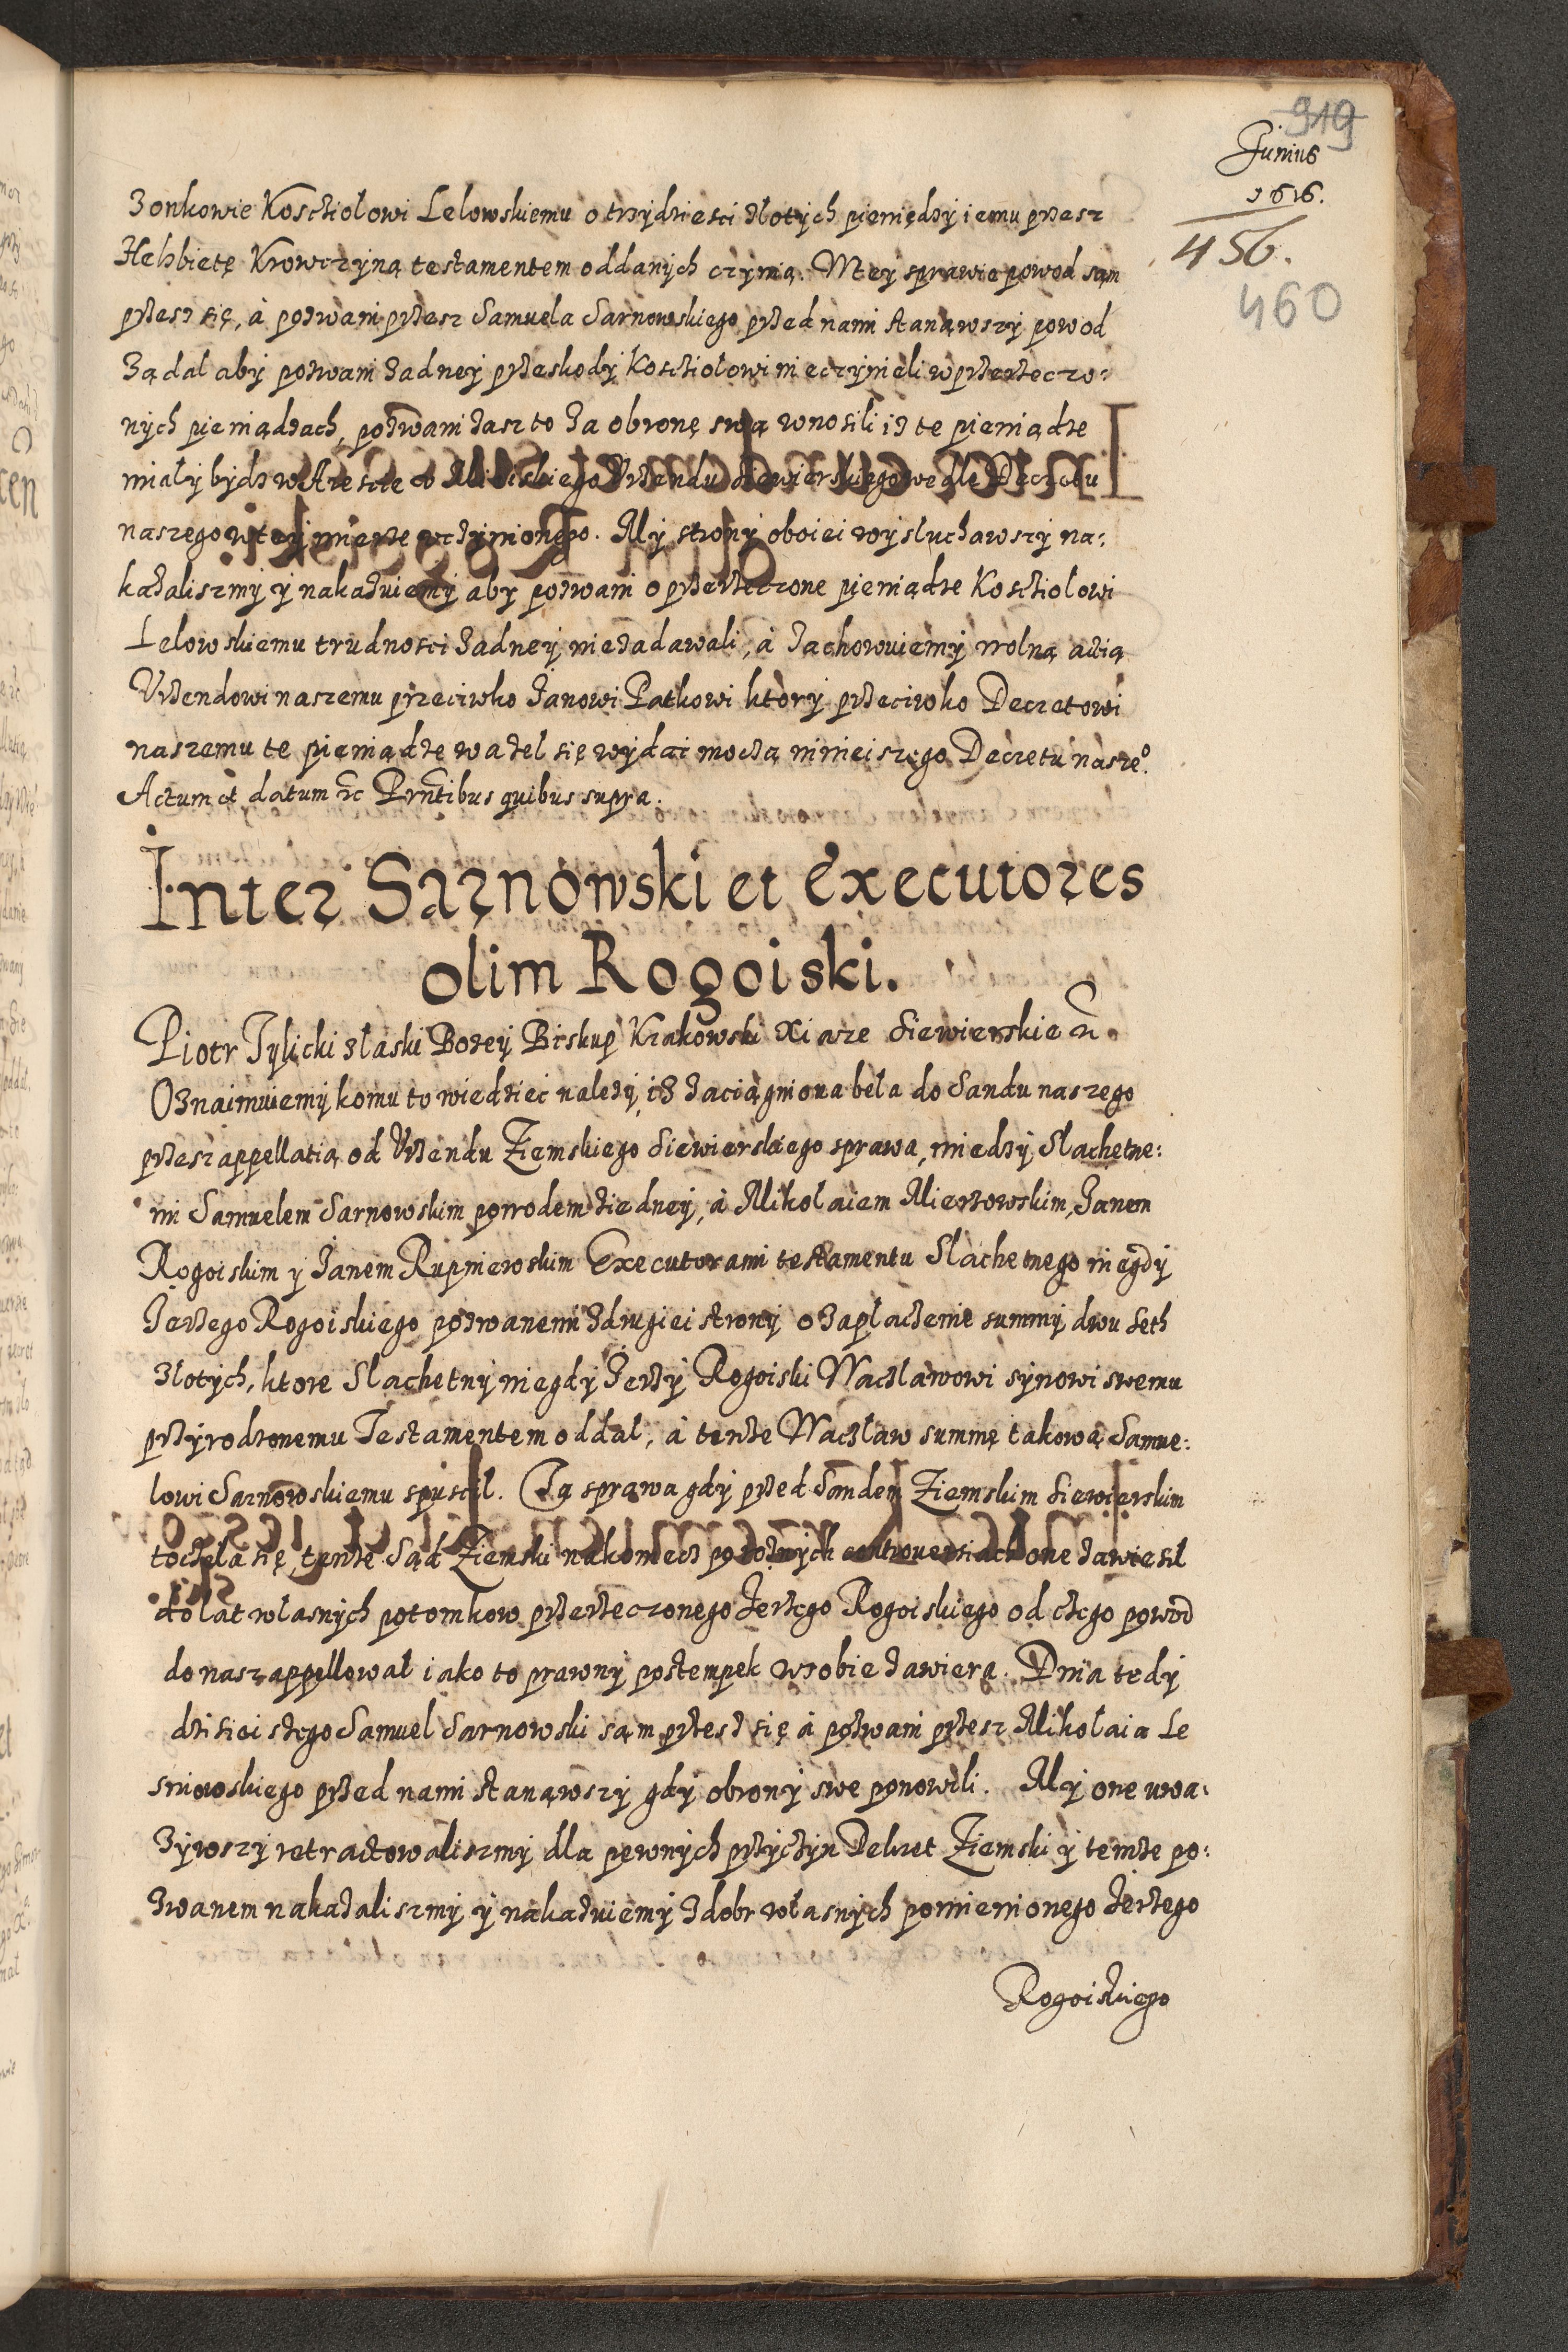 919
Junius
1616.
456.
460
zonkowie Kosciolowi Lelowskiemu o trzydziesci zlotych pieniędzy iemu przesz
Helzbietę Krowczyną testamentem oddanych czynią. W tey sprawie powod sąm
przesz się, à pozwani przesz Samuela Sarnowskiego przed nami stanąwszy powod
ządal aby pozwani zadney przeskody Kosciolowi nieczynieli w przerzeczo:
nych pieniądzach, pozwani zasz to za obronę swą wnosili iz te pieniądze
mialy bydz w Arescie Urzendu Siewierskiego wedle Decretu
naszego w tey mierze uczynionego. My strony oboiei wysluchawszy na:
kazaliszmy y nakazuiemy aby pozwani o przerzeczone pieniądze Kosciolowi
Lelowskiemu trudnosci zadney niezadawali, à zachowuiemy wolną actią
Urzendowi naszemu przeciwko Janowi Patkowi ktory przeciwko Decretowi
naszemu te pieniądze wazel się wydac moczą ninieiszego Decretu naszeº.
Actum et datum etc Prntibus quibus supra.
Inter Sarnowski et Executores
olim Rogoiski.
Piotr Tylicki zlaski Bozey Biskup Krakowski Xiaze Siewierskie etc.
Oznaimuiemy komu to wiedziec nalezy, iz zaciągniona bela do Sandu naszego
przesz appellatią od Urzendu Ziemskiego Siewierskiego sprawa, miedzy Slachetne:
mi Samuelem Sarnowskim powodem ziedney, à Mikolaiem Mierzowskim, Janem
Rogoiskim y Janem Rupniewskim Executorami testamentu Slachetnego niegdy
Jerzego Rogoiskiego pozwanemi zdrugiei strony o zaplaczenie summy dwu seth
zlotych, ktore Slachetny niegdy Jerzy Rogoiski Waczlawowi synowi swemu
przyrodzonemu Testamentem oddal, à tenze Waczlaw summę takową Samue:
lowi Sarnowskiemu spuscil. Ta sprawa gdy przed Sandem Ziemskim Siewierskim
toczela się, tenze Sąd Ziemski nakoniecz po roznych controuersiach one zawiesil
do lat wlasnych potomkow przerzeczonego Jerzego Rogoiskiego od czego powod
do nasz appellowal iako to prawny postempek w sobie zawiera. Dnia tedy
dzisieiszego Samuel Sarnowski sąm przesz się à pozwani przesz Mikolaia Le
sniowskiego przed nami stanąwszy gdy obrony swe ponowili. My one uwa:
zywszy retractowaliszmy dla pewnych przyczyn Dekret Ziemski y temze po:
zwanem nakazaliszmy y nakazuiemy z dobr wlasnych pomienionego Jerzego
Rogoiskiego